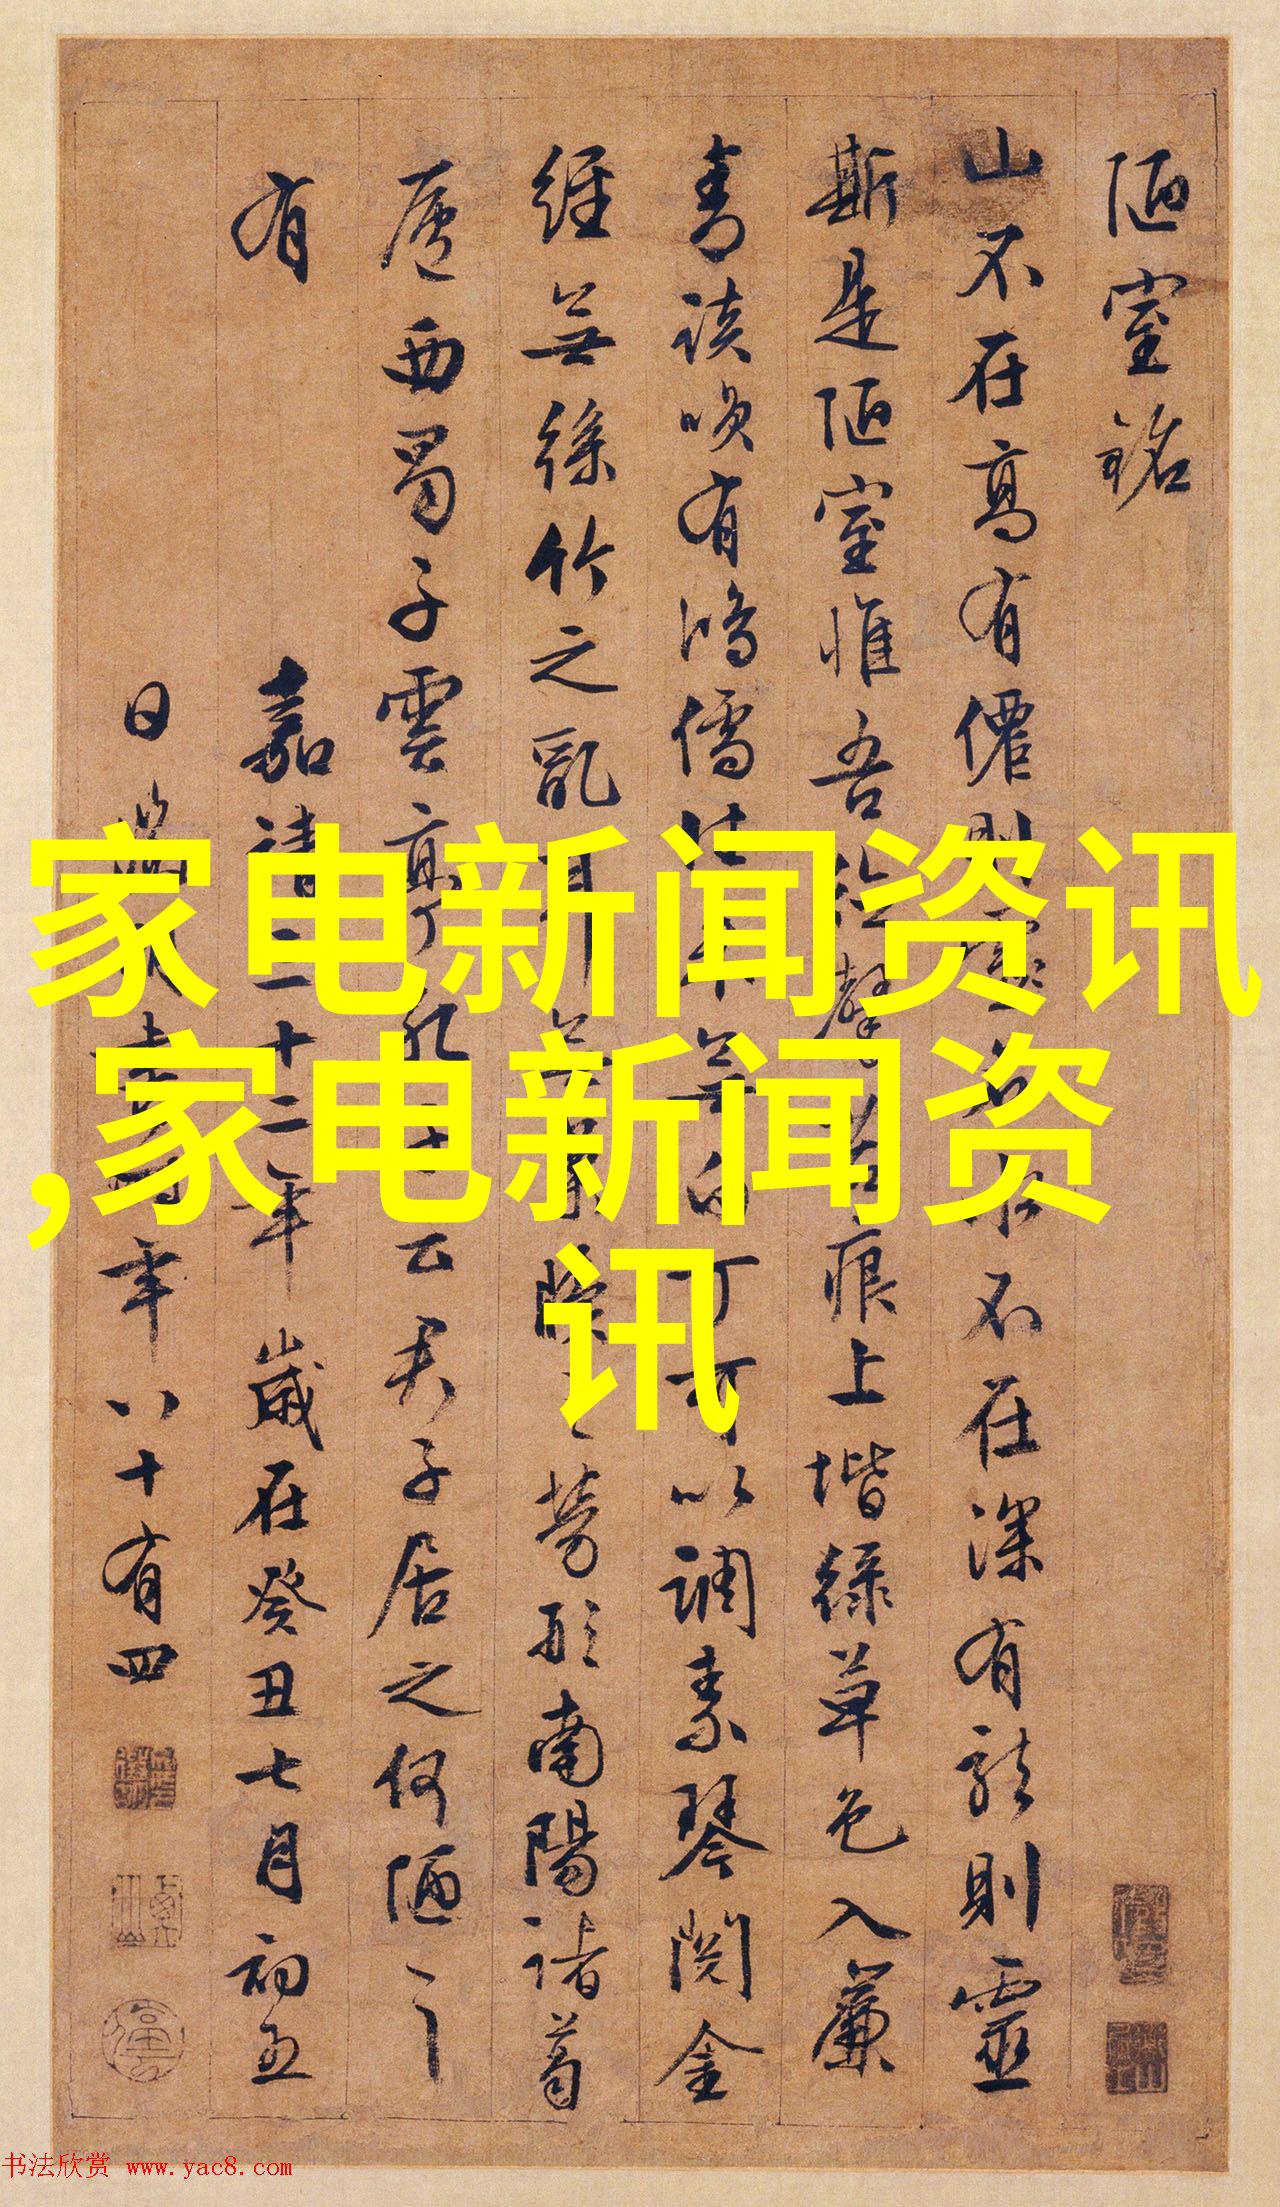 陋室銘
山不在高有僊則名水不在深有龍則靈
斯是陋室惟吾德馨苔痕上堦綠草色入簾
青談唉有鴻儒往來無白丁可以調素琴閱金
經無絲竹之亂耳無案牘之勞形南陽諸葛
廬西蜀子雲亭孔子云君子居之何陋之
有
嘉靖二十二年歲在癸丑七月初五
日
年八十有四
家电新闻资讯
,家电新闻资
讯
书法欣赏 www.yac8.com